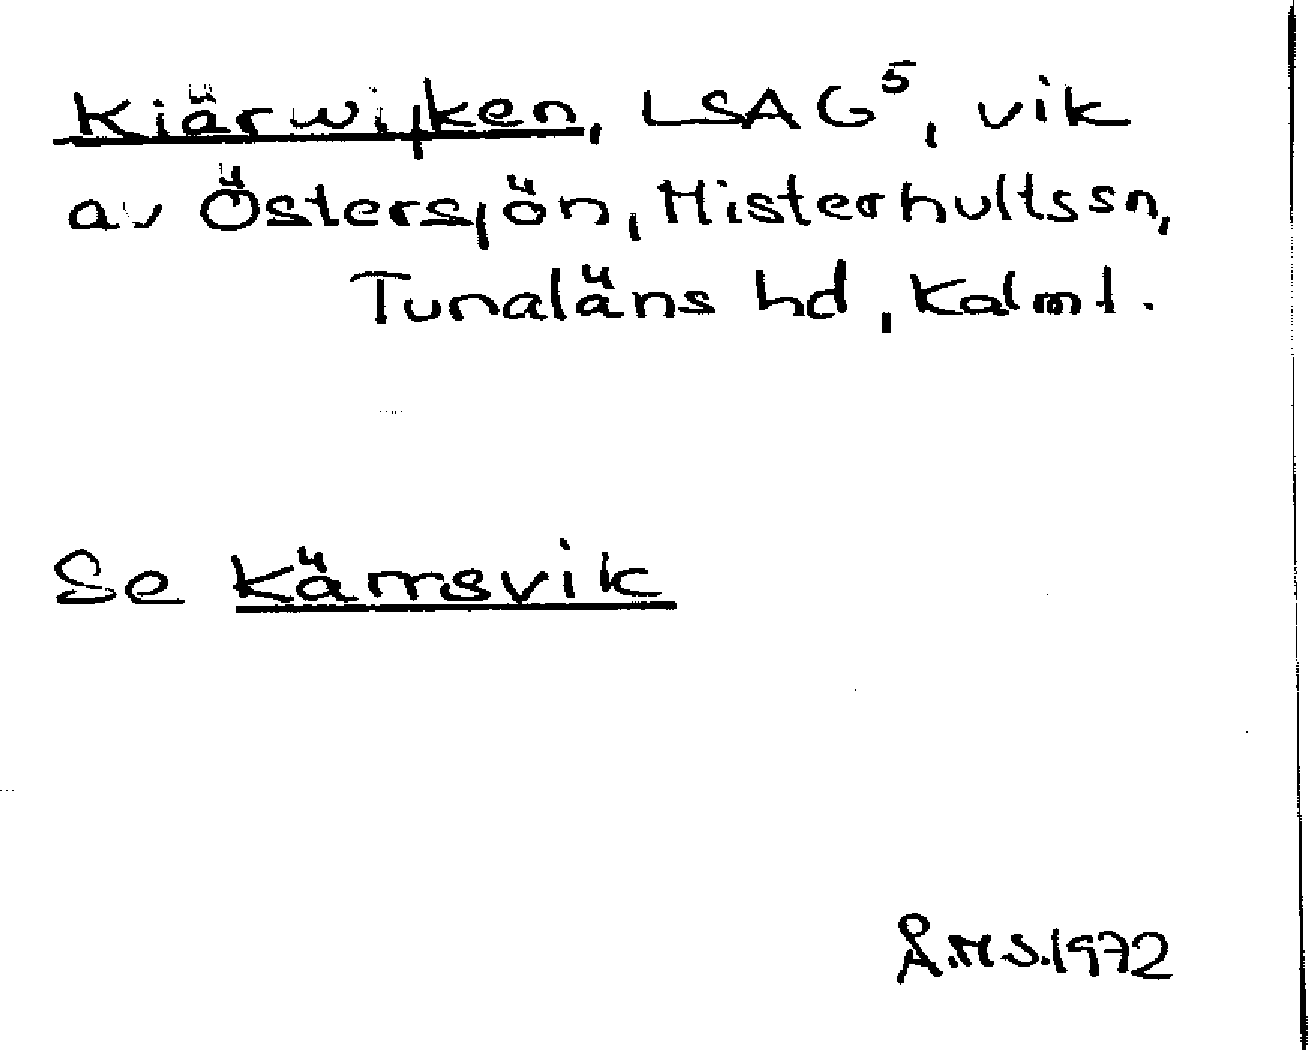 Kiärwijken, LSA G⁵, vik
av Östersjön, Misterhultssn,
Tunaläns hd, Kalml.
Se Kärrsvik
Å.M S.1972